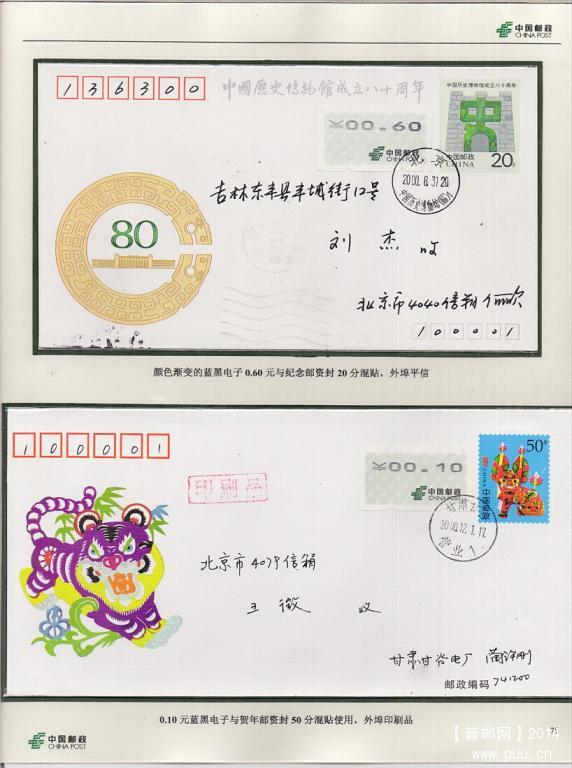 中国邮政
CHINA POST
136300
中國歷史博物館成立八十周年
中国历史博物馆成立八十周年
¥00.60
中国邮政
CHINA POST
中国邮政
CHINA
20分
北京
2000.8.31.20
80
吉林东丰县丰城街12号
刘杰收
北京市4040信箱
100001
颜色渐变的蓝黑电子 0.60 元与纪念邮资封 20 分混贴，外埠平信
100001
¥00.10
中国邮政
CHINA POST
50分
中国邮政
CHINA
印刷品
甘肃
2000.12.1.17
北京市4079信箱
王徵 收
甘肃甘谷电厂
邮政编码 741200
0.10 元蓝黑电子与贺年邮资封 50 分混贴使用，外埠印刷品
中国邮政
CHINA POST
【普邮网】2014
www.puu.cn